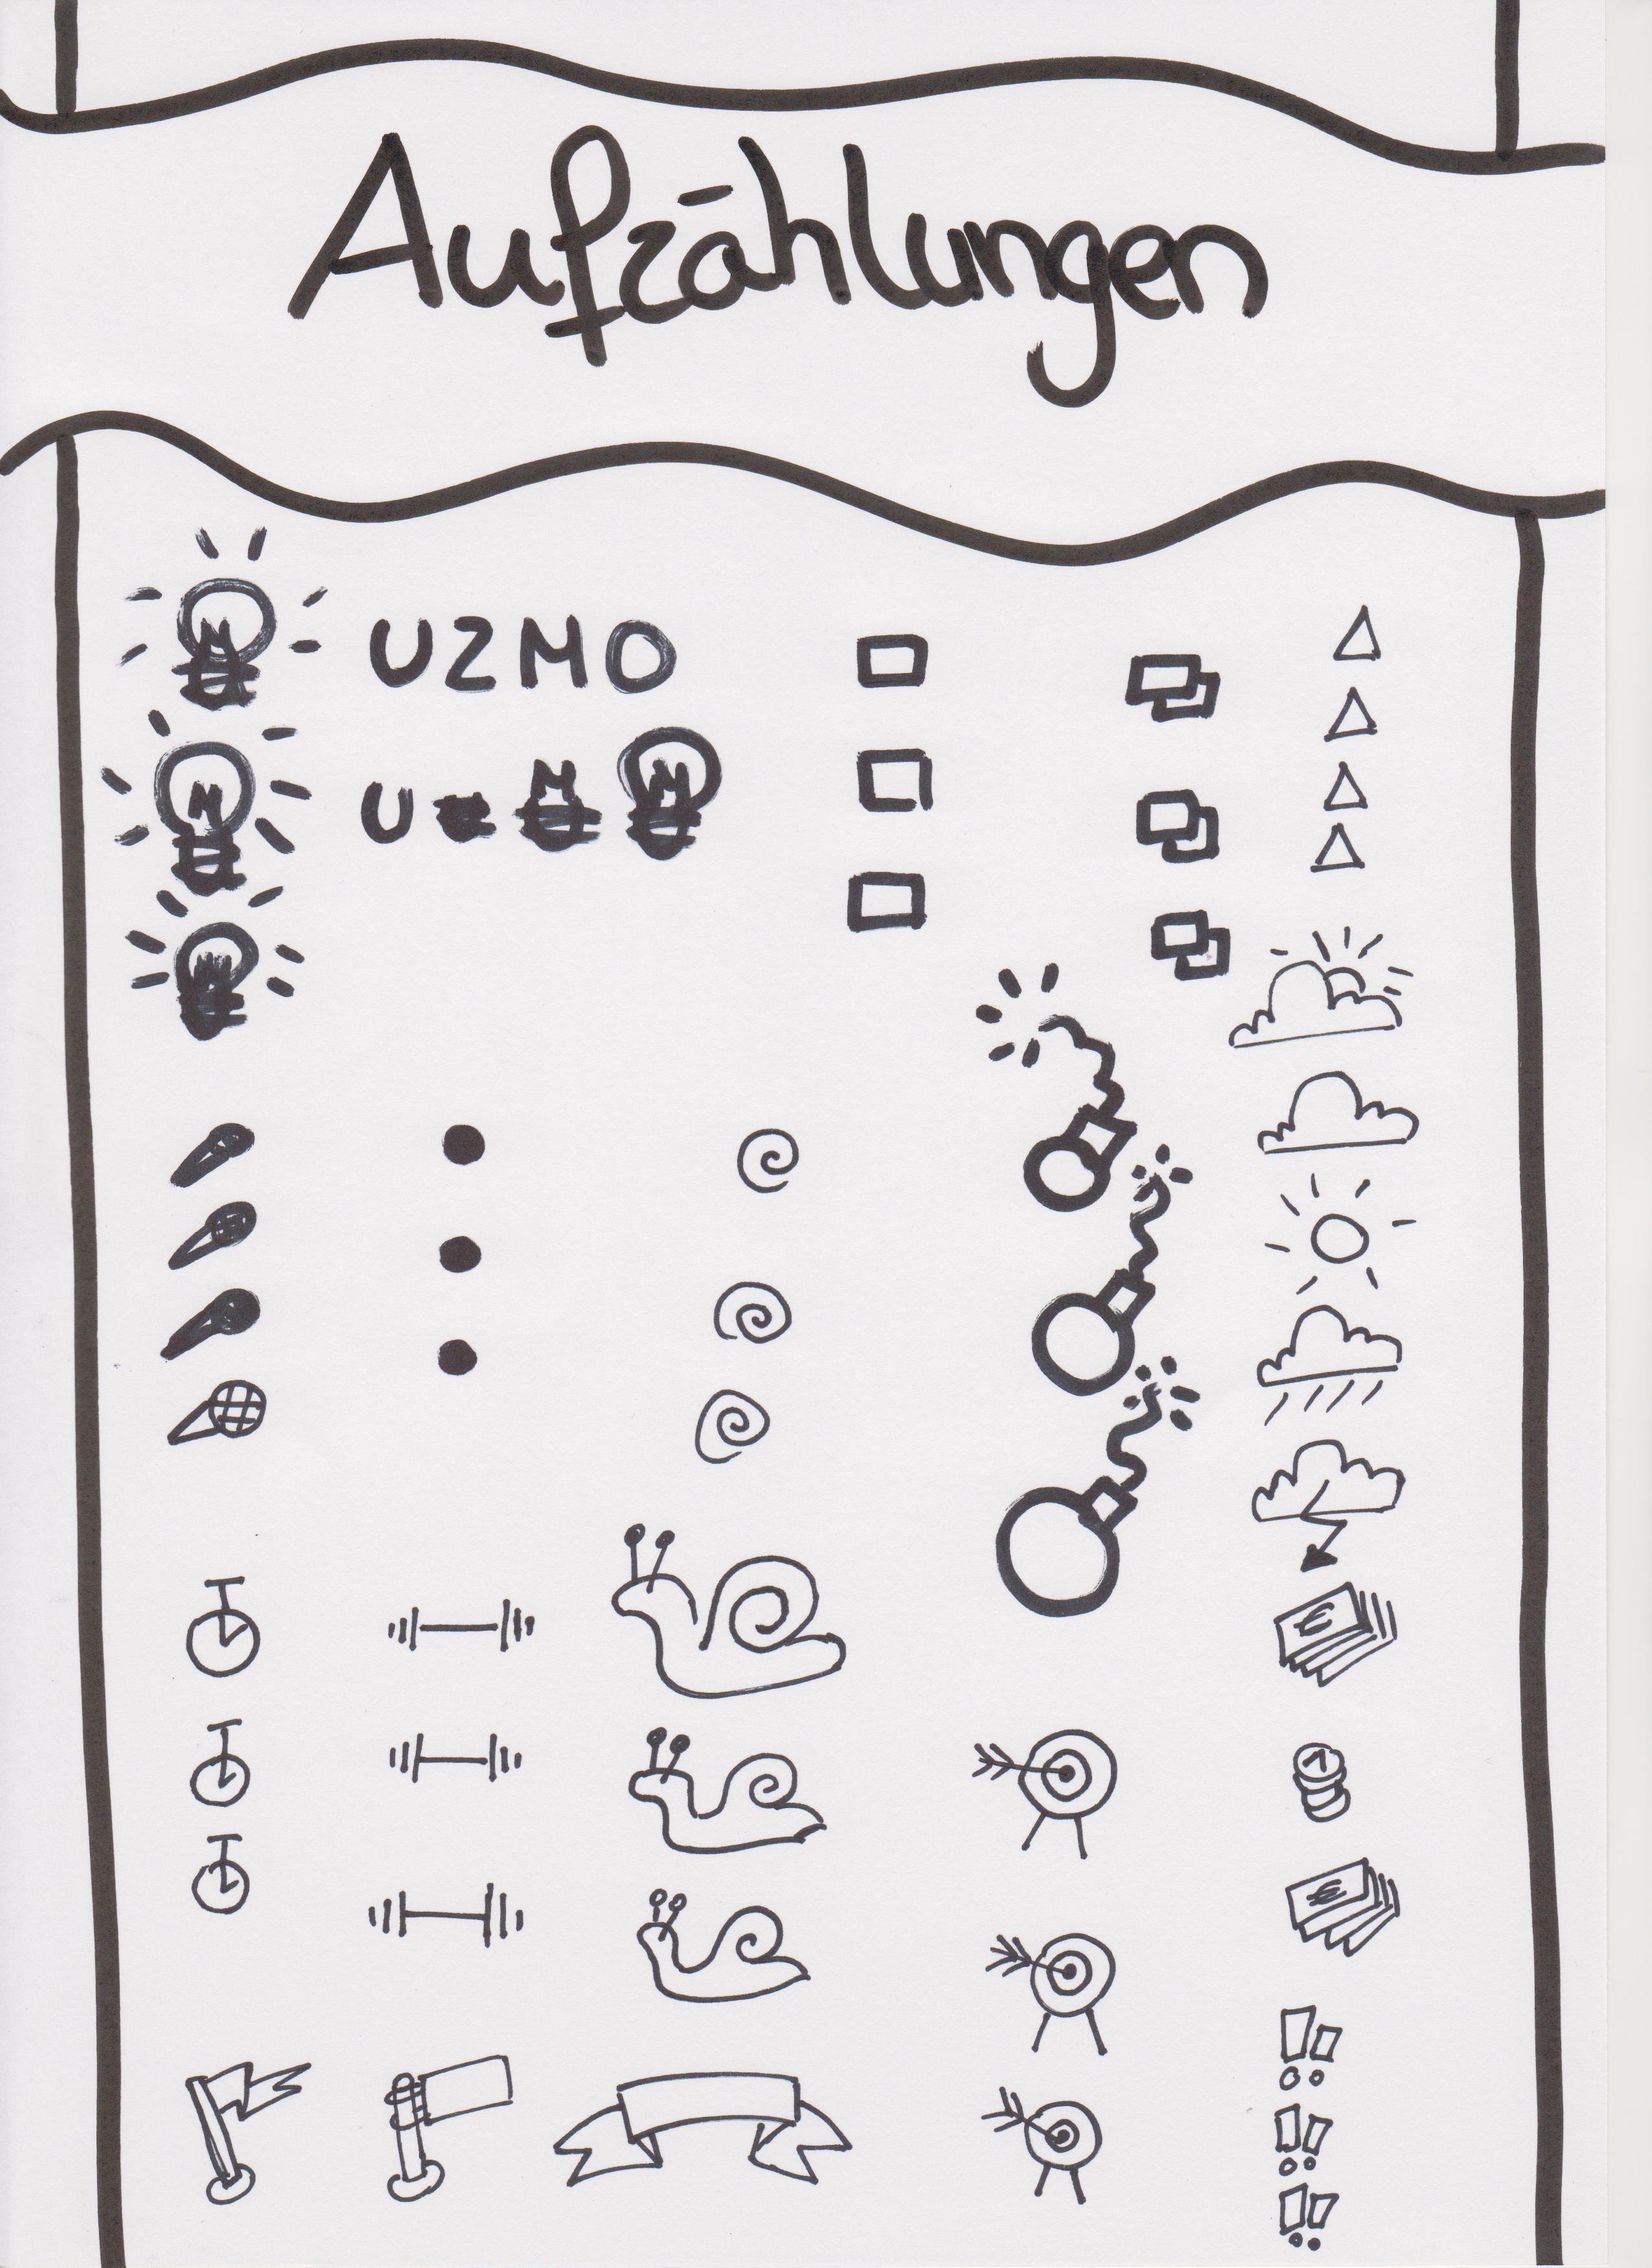 Aufzählungen
UZMO
U
€
1
€